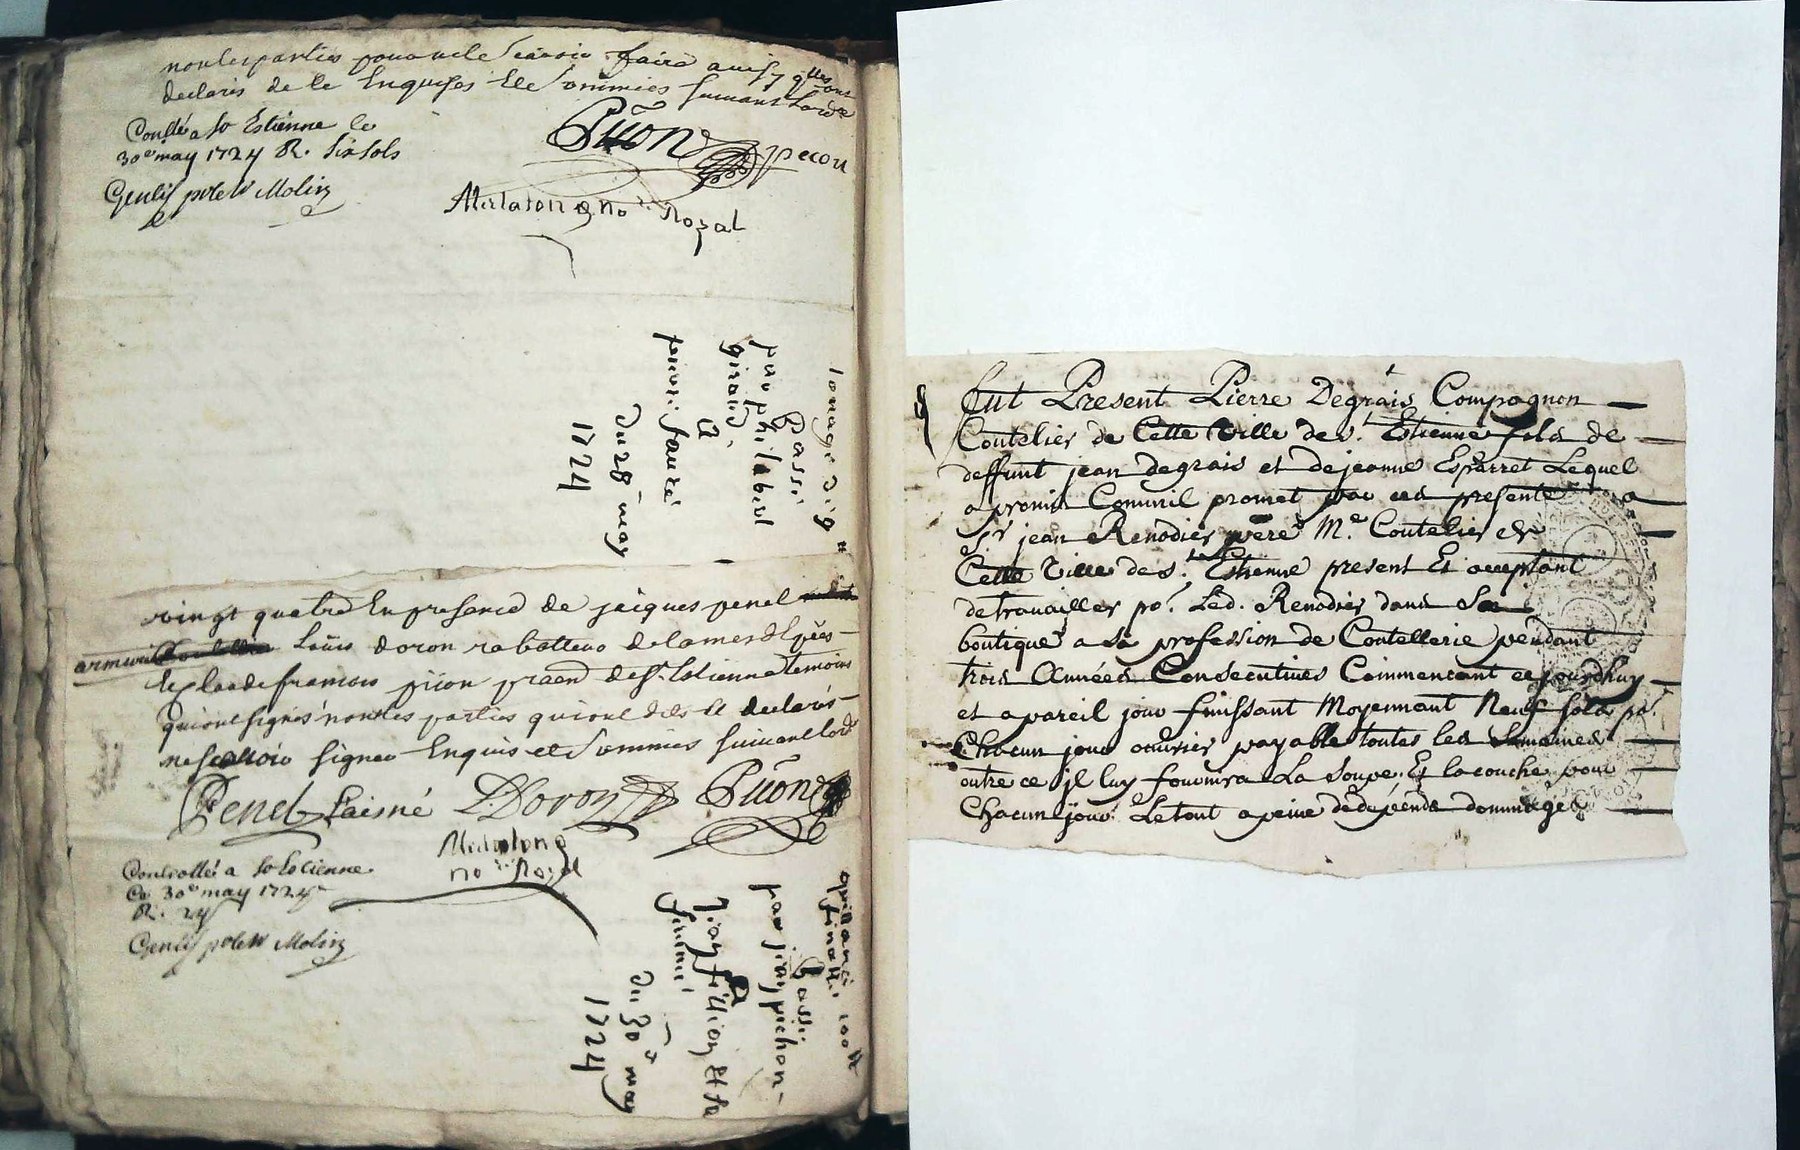 non les parties pour ne le scavoir faire ainsy qlles ont
declarés de ce Enquises Et Sommées suivant Lordce
Conllé a St Estienne le
30e may 1724 R. six sols
Piion
pecou
Genlis pr le Sr Molin
no.re Royal
louage
Passé
par philibert
giraud
Et
pierre faure
du 28e may
1724
vingt quatre En presence de jacques penel
armurier Louis doron rabatteur de lames dEpées
et françois piion praen de St. Estienne temoins
qui ont signés non les parties qui ont dits Et declarés
ne scavoir signer Enquis et Sommés suivant lord
Penel Laisné Doron Piion
no.re Royal
Controllé a St Estienne
Ce 30e may 1724
R. 24s
Genlis pr le Sr Molin
quittance
finalle 100 tt
Passé
par jean pichon
Jean fillion Et sa
femme
du 30e may
1724
fut Present Pierre Degrais Compagnon
Coutelier de Cette Ville de St. Estienne fils de
deffunt jean degrais et de jeanne Esparret Lequel
a promis Comme il promet par ces presente a
Sr jean Renodier pere Me. Coutelier de
Cette Ville de St. Estienne present Et acceptant
de travailler po.r Led. Renodier dans Sa
boutique a sa profession de Coutellerie pendant
trois Années Consecutives Commencant ce jourdhuy
et a pareil jour finissant Moyennant Neuf sols po.r
Chacun jour ouvrier payable toutes les Semaines
outre ce jl luy fournira La Soupe Et la couche pour
Chacun jour Le tout a peine de depends dommages